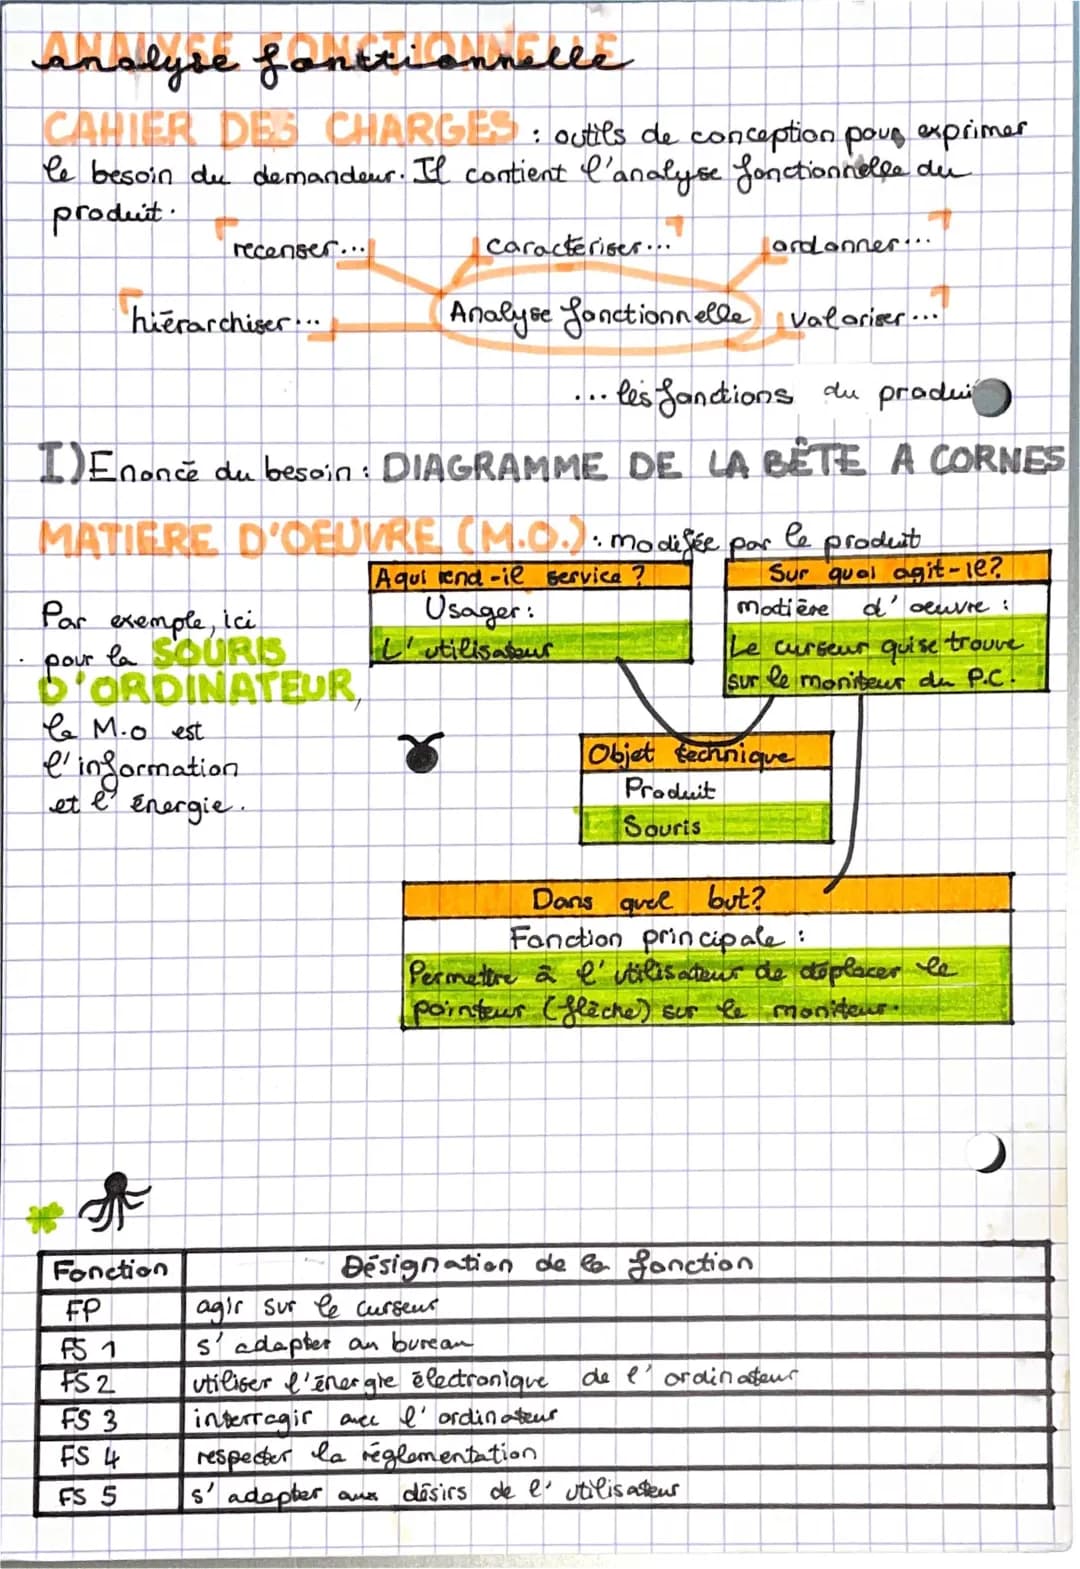 ANALYSE FONCTIONNELLE
analyse fonctionnelle
CAHIER DES CHARGES : outils de conception pour exprimer
le besoin du demandeur. Il contient l'analyse fonctionnelle du
produit.
recenser... caractériser... ordonner...
hiérarchiser... Analyse fonctionnelle valoriser...
... les fonctions du produi
I) Enoncé du besoin : DIAGRAMME DE LA BÊTE A CORNES
MATIERE D'OEUVRE (M.O.) : modifée par le produit
A qui rend-il service ?
Usager :
L'utilisateur
Sur quoi agit-il?
matière d'oeuvre :
Le curseur qui se trouve
sur le moniteur du P.C.
Par exemple, ici
pour la SOURIS
D'ORDINATEUR,
la M.O est
l'information
et l'énergie.
Objet technique
Produit
Souris
Dans quel but?
Fonction principale :
Permettre à l'utilisateur de déplacer le
pointeur (flèche) sur le moniteur.
Fonction Désignation de la fonction
FP agir sur le curseur
FS 1 s'adapter au bureau
FS 2 utiliser l'énergie électronique de l'ordinateur
FS 3 interragir avec l'ordinateur
FS 4 respecter la réglementation
FS 5 s'adapter aux désirs de l'utilisateur